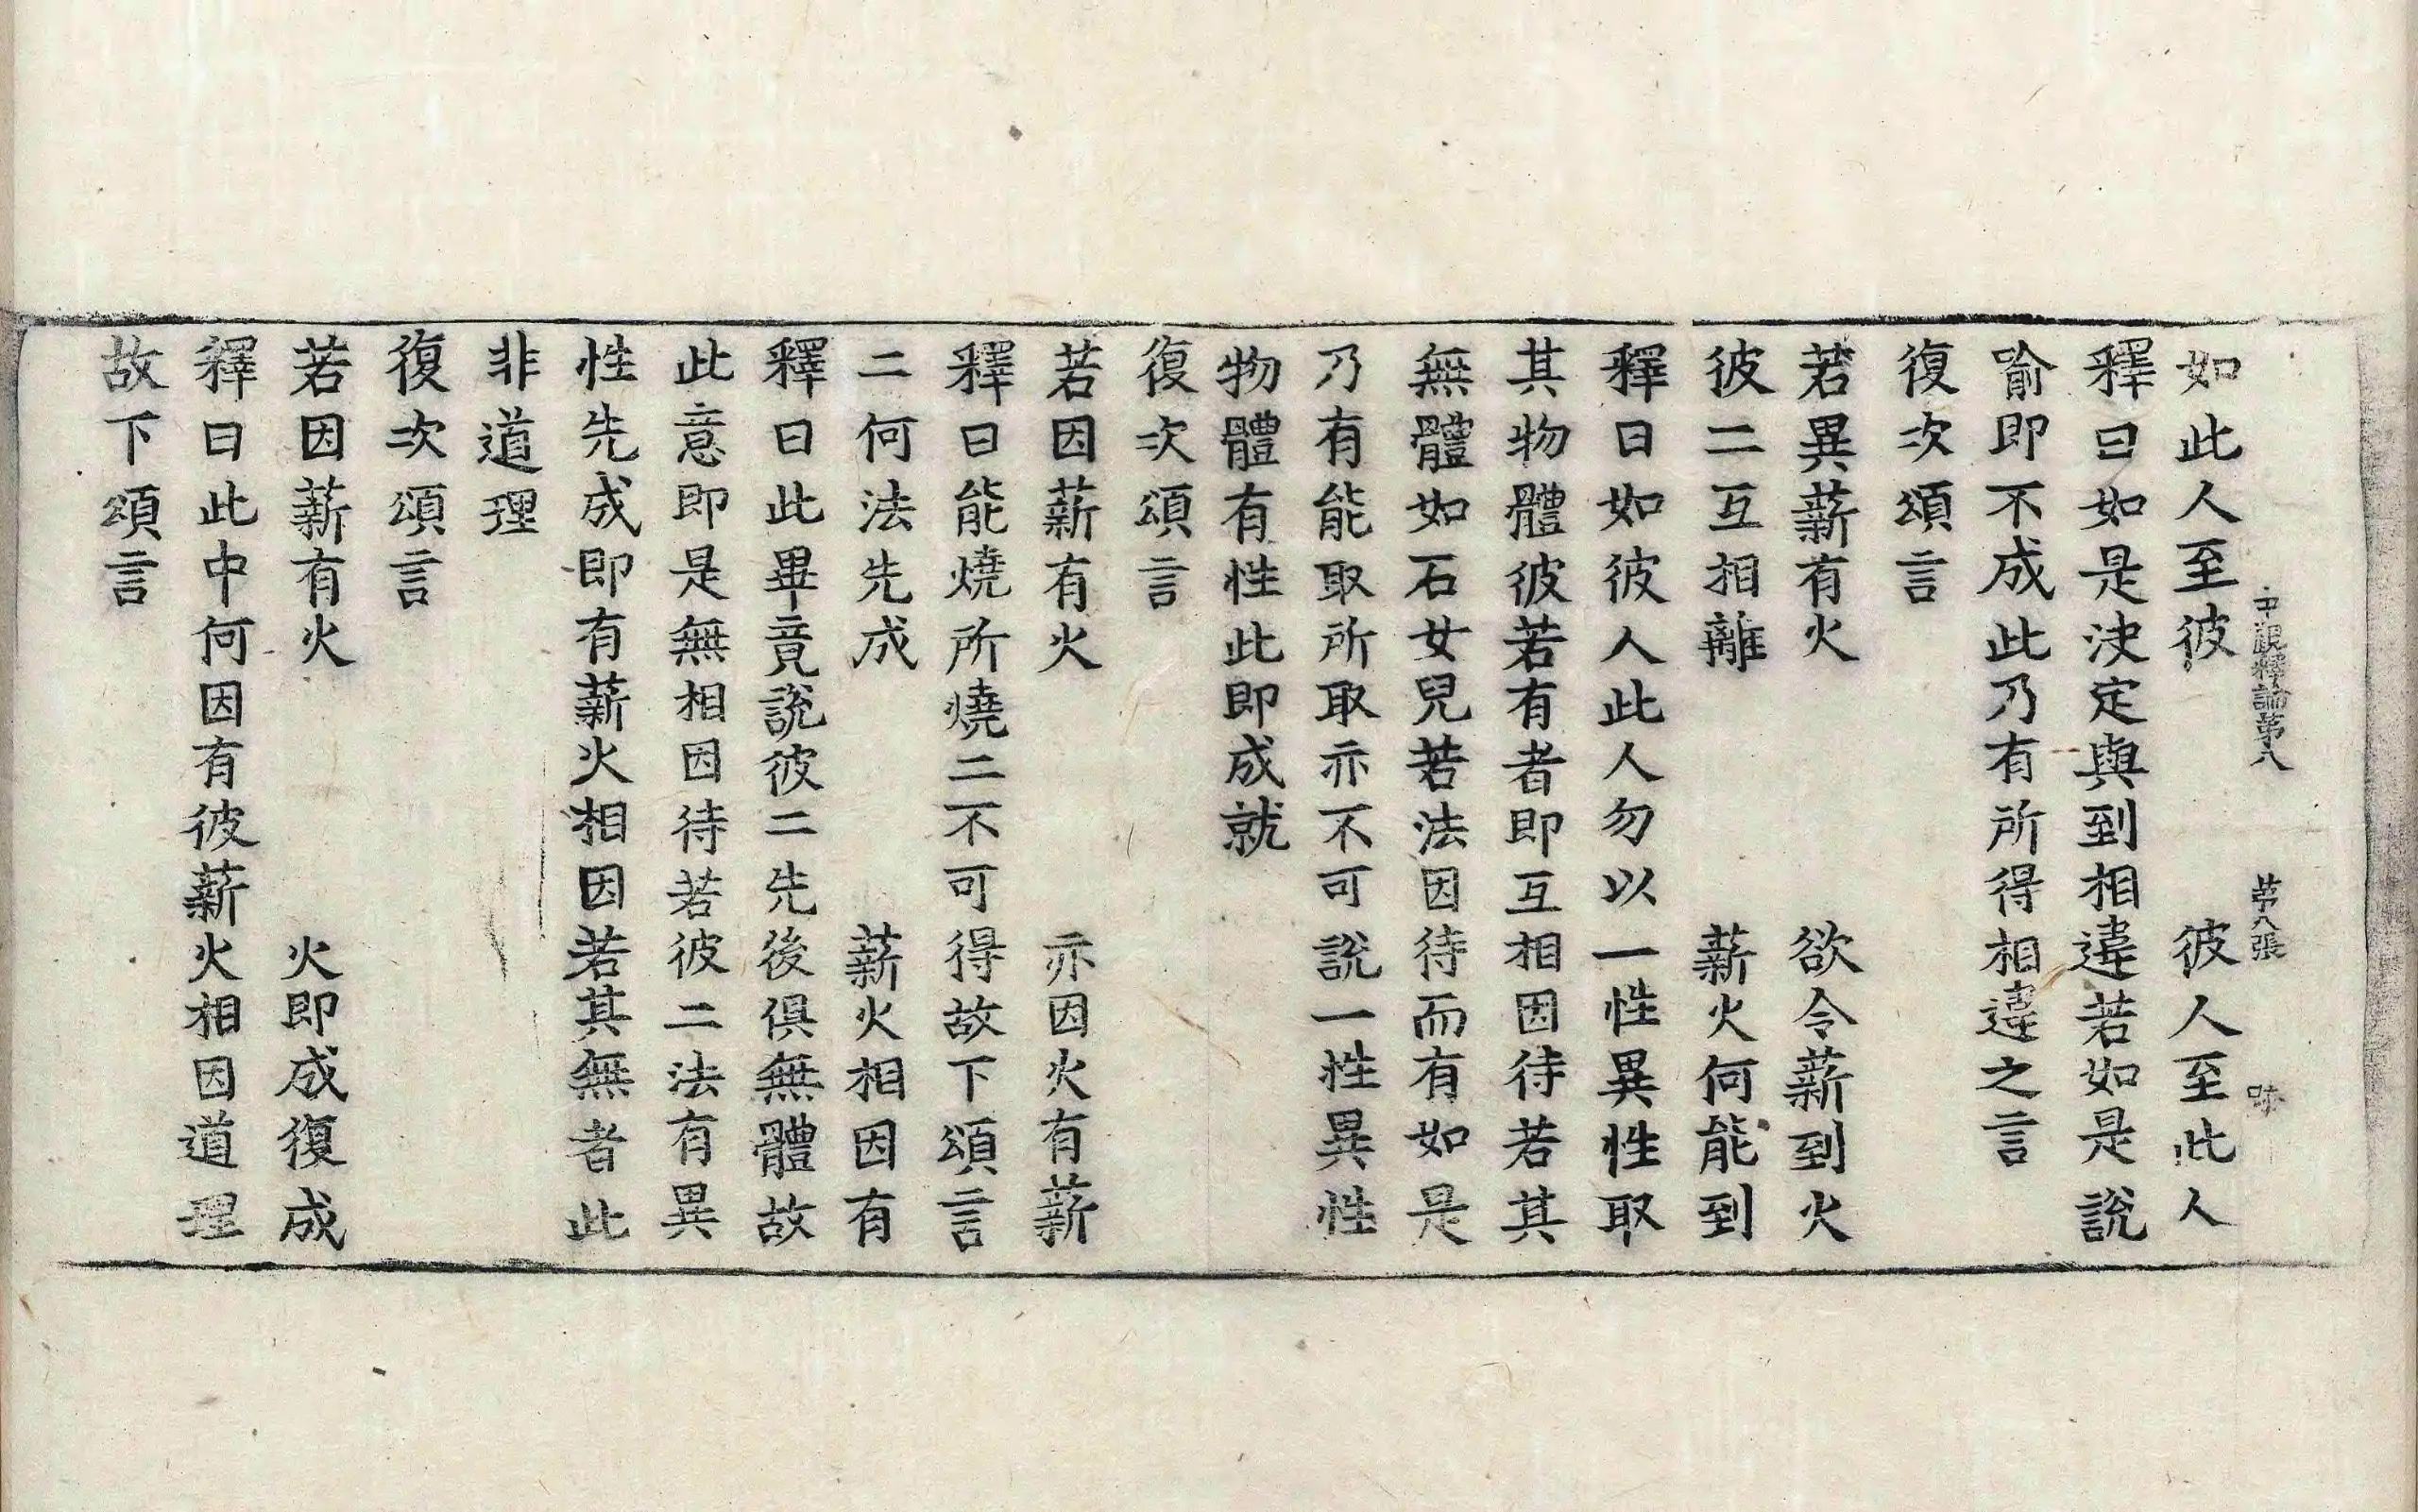 中觀釋論第八　第八張　味
如此人至彼　彼人至此人
釋曰如是決定與到相違若如是說
喻即不成此乃有所得相違之言
復次頌言
若異薪有火　欲令薪到火
彼二互相離　薪火何能到
釋曰如彼人此人勿以一性異性取
其物體彼若有者即互相因待若其
無體如石女兒若法因待而有如是
乃有能取所取亦不可說一性異性
物體有性此即成就
復次頌言
若因薪有火　亦因火有薪
釋曰能燒所燒二不可得故下頌言
二何法先成　薪火相因有
釋曰此畢竟說彼二先後俱無體故
此意即是無相因待若彼二法有異
性先成即有薪火相因若其無者此
非道理
復次頌言
若因薪有火　火即成復成
釋曰此中何因有彼薪火相因道理
故下頌言